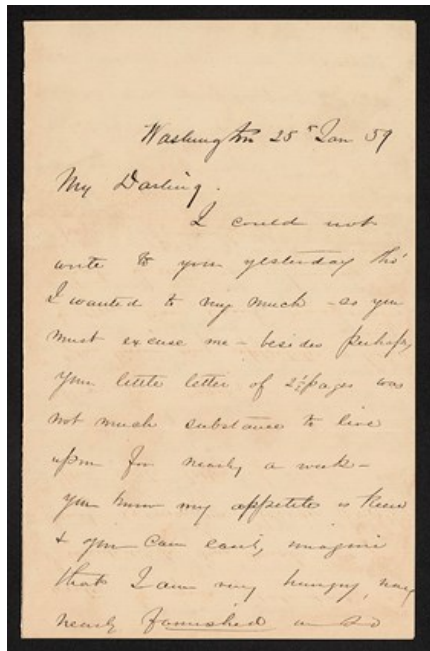 Washington 25th Jan 59
My Darling.
I could not
write to you yesterday tho'
I wanted to very much – so you
must excuse me – besides perhaps
your little letter of 2½ pages was
not much substance to live
upon for nearly a week –
you know my appetite is keen
& you can easily imagine
that I am very hungry, nay
nearly famished